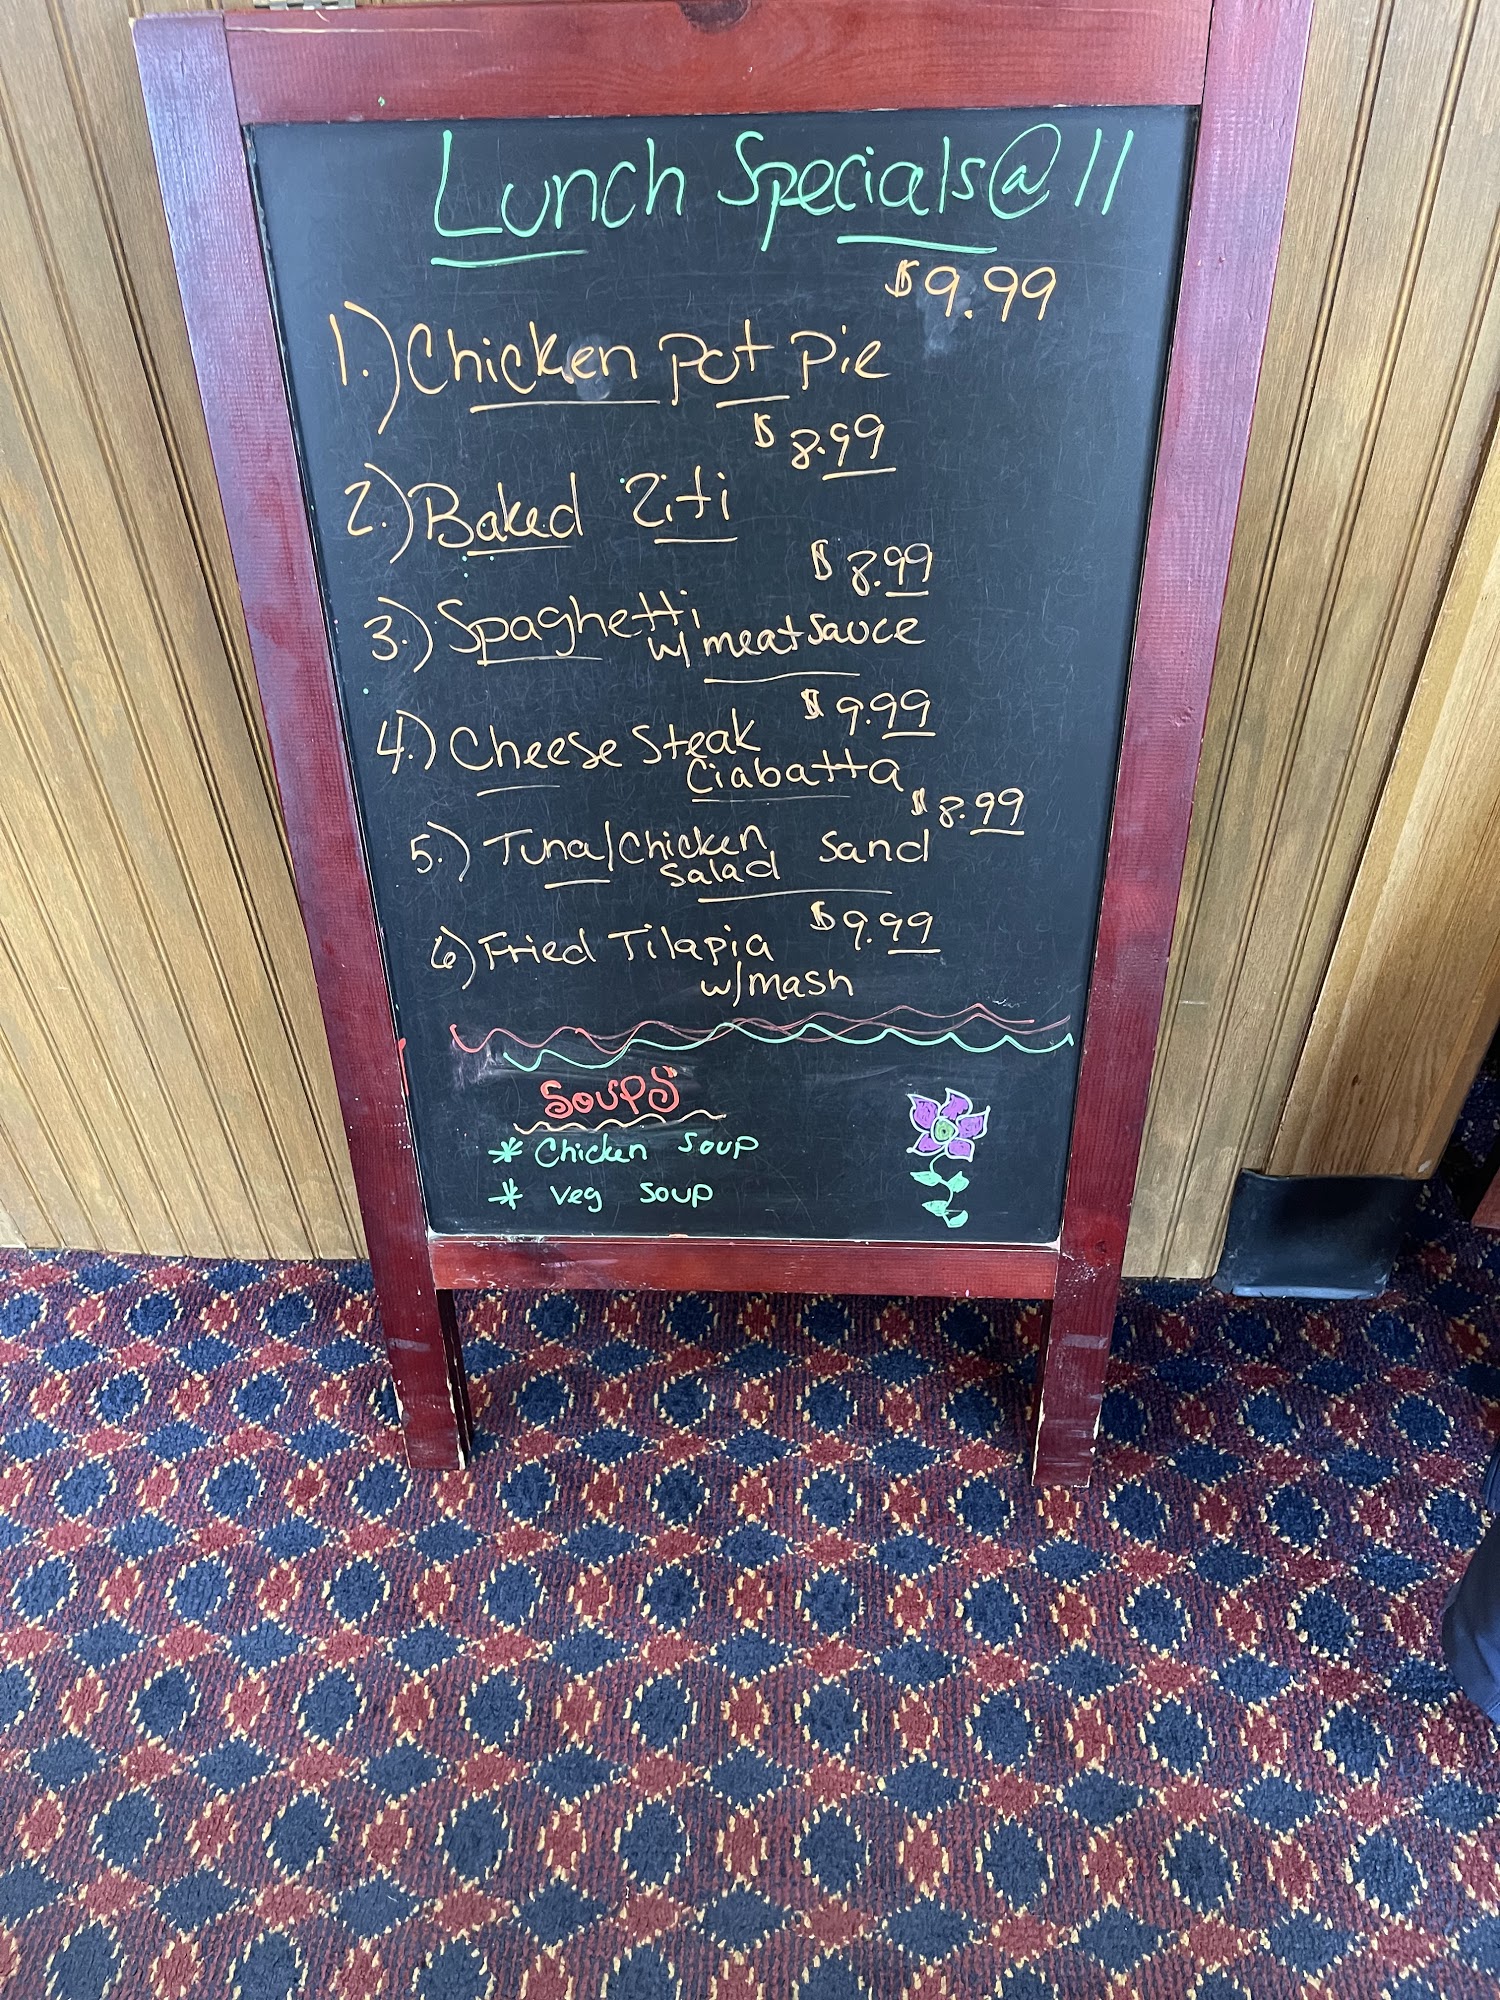 Lunch Specials @ 11
$9.99
1.) Chicken pot pie
$8.99
2.) Baked Ziti
$8.99
3.) Spaghetti
w/ meat sauce
$9.99
4.) Cheese Steak
Ciabatta
$8.99
5.) Tuna/Chicken Sand
Salad
$9.99
6) Fried Tilapia
w/mash
Soups
* Chicken Soup
* Veg Soup